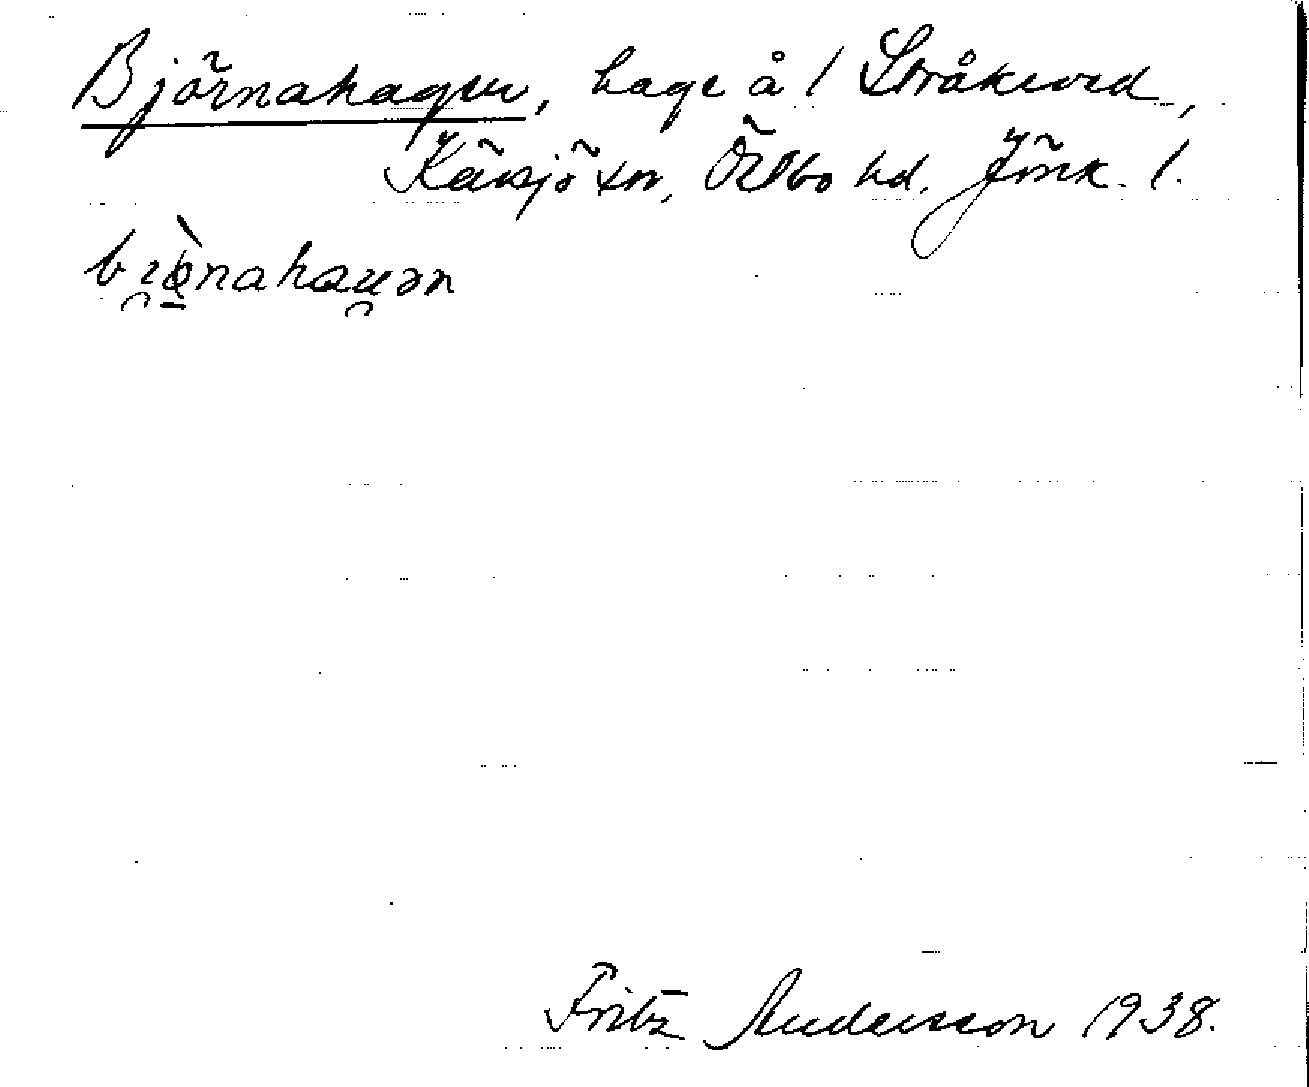 Björnahagen, hage å / Stråkeved,
Kävsjö sn, Östbo hd. Jönk. l.
bi̯ø̠̀nahau̯ən
Fritz Andersson 1938.